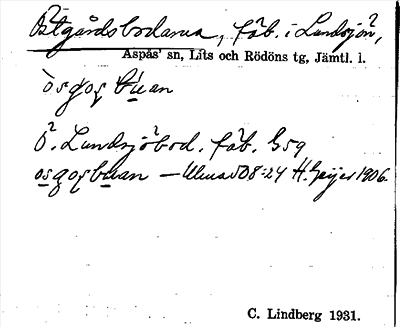 Östgårdsbodarna, fäb. i Landsjön,
Aspås' sn, Lits och Rödöns tg, Jämtl. l.
Ö. Landsjöbod. fäb. G 59
— Ulma 508:24 H. Geijer 1906.
C. Lindberg 1931.